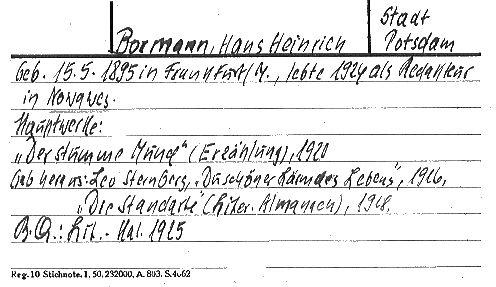 Bormann, Hans Heinrich
Stadt
Potsdam
Geb. 15.5.1895 in Frankfurt/M., lebte 1924 als Redakteur
in Nowawes.
Hauptwerke:
„Der stumme Mund" (Erzählung), 1920
Gab heraus: Leo Sternberg, „Du schöner Lärm des Lebens", 1926,
„Die Standarte" (Liter. Almanach), 1928.
B.Q.: Lit.-Kal. 1925
Reg. 10 Stichnote. I. 50. 232000. A. 803. S. 4062